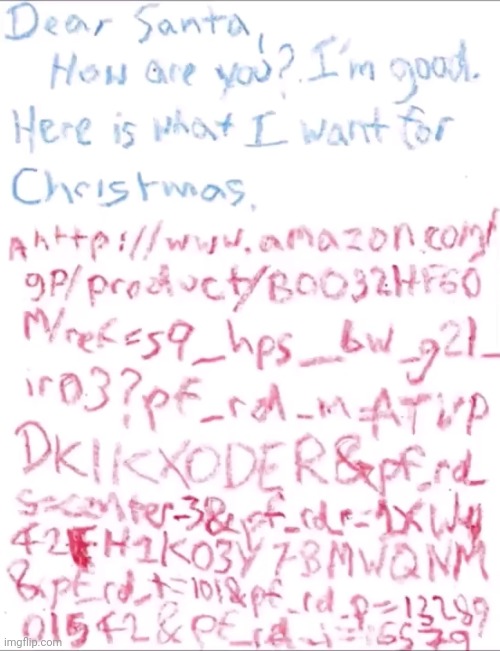 Dear Santa,
How are you? I'm good.
Here is what I want for
Christmas.
A http://www.amazon.com/
gp/product/B0032HF60
M/ref=s9_hps_bw_g21_
ir03?pf_rd_m=ATVP
DKIKX0DER&pf_rd_
s=center-3&pf_rd_r=1XWy
42FH1K03Y7BMWQNM
&pf_rd_t=101&pf_rd_p=13289
01542&pf_rd_i=16579
imgflip.com